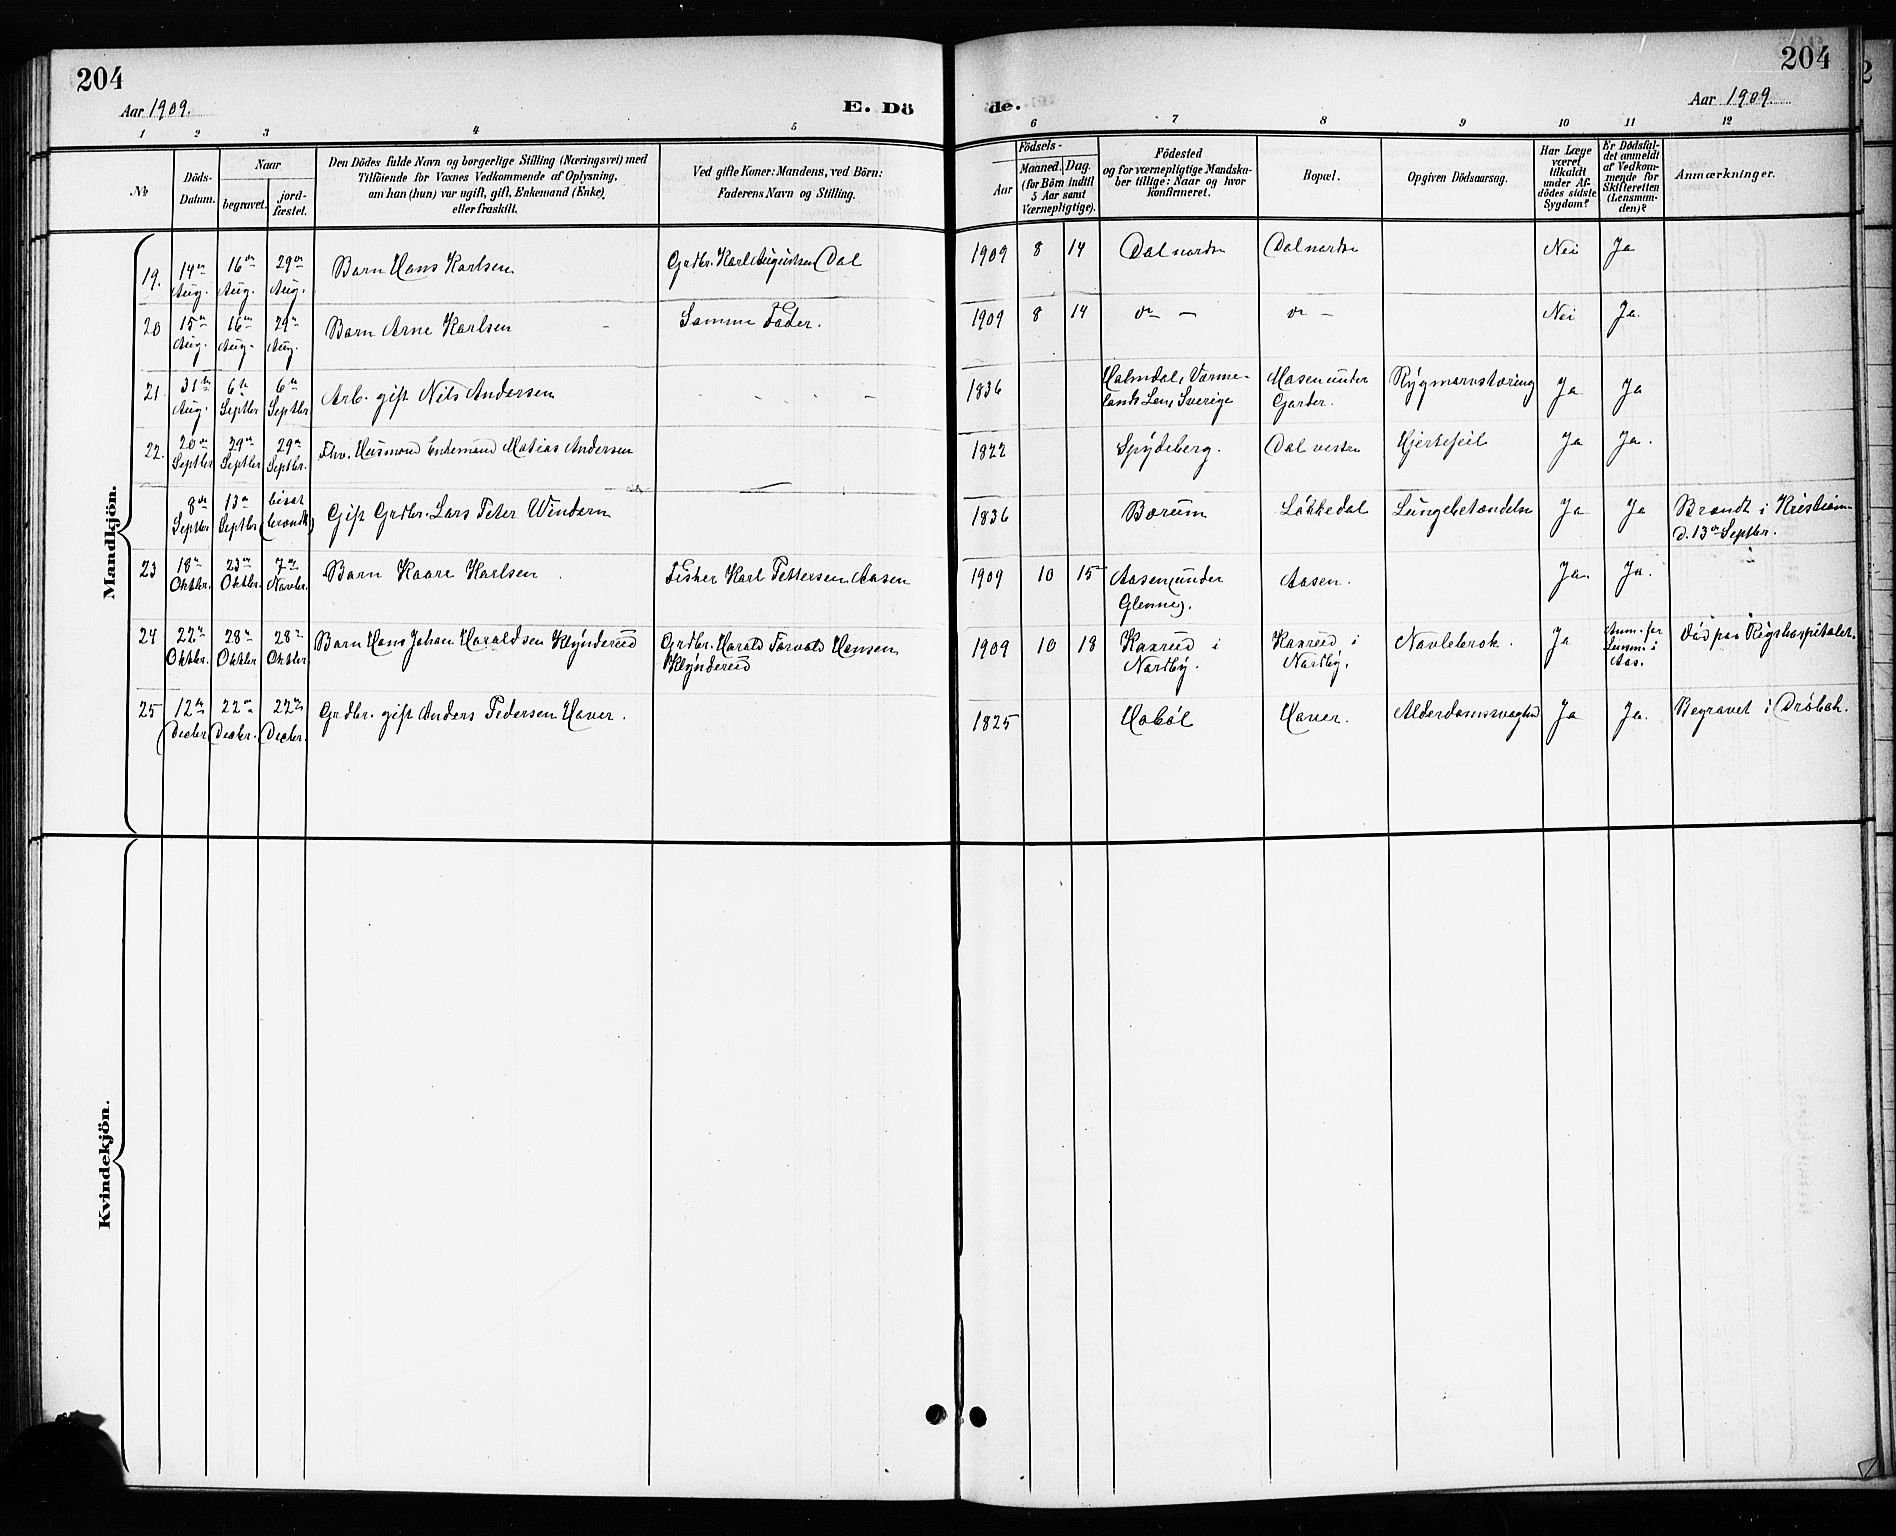 204
Aar 1909.
E. Dö
de.
Aar 1909.
204
1 2 3 4 5 6 7 8 9 10 11 12
No
Döds-
Datum.
Naar
begravet.
jord-
fæstet.
Den Dödes fulde Navn og borgerlige Stilling (Næringsvei) med
Tilföiende for Voxnes Vedkommende af Oplysning,
om han (hun) var ugift, gift, Enkemand (Enke)
eller fraskilt.
Ved gifte Koner: Mandens, ved Börn:
Faderens Navn og Stilling.
Födsels-
Aar
Maaned.
Dag.
(for Börn indtil
5 Aar samt
Værnepligtige).
Födested
og for værnepligtige Mandska-
ber tillige: Naar og hvor
konfirmeret.
Bopæl.
Opgiven Dödsaarsag.
Har Læge
været
tilkaldt
under Af-
dödes sidste
Sygdom?
Er Dödsfal-
det anmeldt
af Vedkom-
mende for
Skifteretten
(Lensman-
den)?
Anmærkninger.
Mandkjön.
19. 14de Aug. 16de Aug. 29de Aug. Barn Hans Karlsen Grdbr. Karl Augustsen Dal 1909 8 14 Dal nordre Dal nordre Nei Ja
20 15de Aug. 16de Aug. 29de Aug. Barn Arne Karlsen – Samme Fader. 1909 8 14 do – do – Nei Ja.
21 31te Aug. 6te Septbr 6te Septbr Arb. gift Nils Andersen - - - - 1836 Holmdal, Værme-
lands Len, Sverige Aasen under
Garder. Rygmarvstæring Ja Ja
22. 20de Septbr 29de Septbr 29de Septbr. Fhv. Husmand Enkemand Matias Andersen 1822 Spydeberg. Dal vestre Hjertefeil Ja Ja.
8de Septbr 13de Septbr bisat (brændt) Gift Grdbr. Lars Peter Windern — 1836 Bærum Løkkedal Lungebetændelse Ja Ja Brændt i Kristiania
d. 13de Septbr.
23 18de Oktbr. 23de Oktbr. 7de Novbr. Barn Kaare Karlsen. Fisker Karl Pettersen Aasen 1909 10 15 Aasen (under
Glenne). Aasen. Ja. Ja.
24 22de Oktbr. 28de Oktbr 28de Oktbr Barn Hans Johan Haraldsen Klynderud Grdbr. Harald Torvald Hansen
Klynderud 1909 10 18 Kaxrud i
Nordby. Kaxrud i
Nordby. Navlebrok. Ja Anm. for
Lensm. i
Aas. Död paa Rigshospitalet.
25 12te Decbr 22de Decbr. 22de Decbr. Grdbr. gift Anders Pedersen Haver. 1825 Hobøl Haver. Alderdomssvaghed Ja Ja. Begravet i Drøbak.
Kvindekjön.